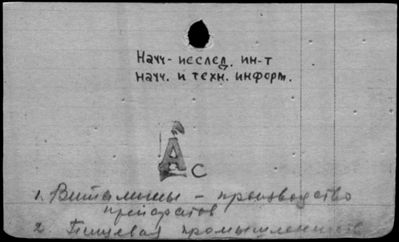 Науч-исслед. ин-т
науч. и техн. информ.
А с
1. Витамины - производство
препаратов
2. Пищевая промышленность